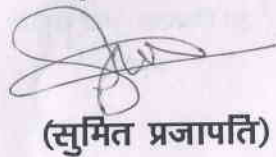 (सुमित प्रजापति)